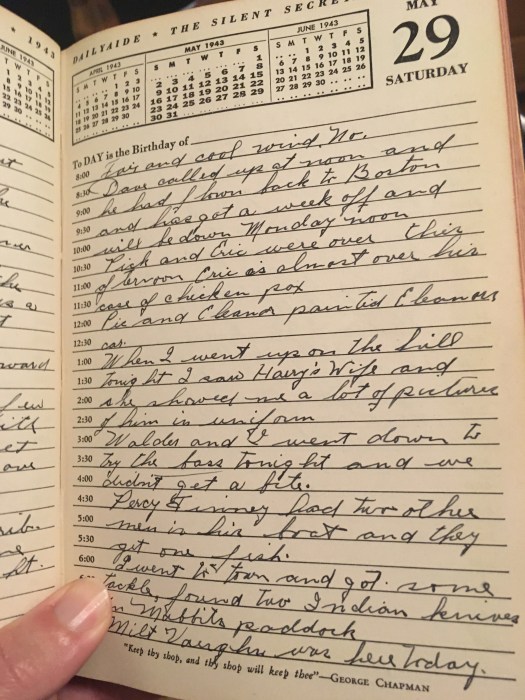 1943 DAILYAIDE * THE SILENT SECRE
JUNE 1943
APRIL 1943
S M T W T F S
1 2 3
4 5 6 7 8 9 10
11 12 13 14 15 16 17
18 19 20 21 22 23 24
25 26 27 28 29 30
MAY 1943
S M T W T F S
1
2 3 4 5 6 7 8
9 10 11 12 13 14 15
16 17 18 19 20 21 22
23 24 25 26 27 28 29
30 31
JUNE 1943
S M T W T F S
1 2 3 4 5
6 7 8 9 10 11 12
13 14 15 16 17 18 19
20 21 22 23 24 25 26
27 28 29 30
MAY
29
SATURDAY
To DAY is the Birthday of
8:00 Fair and cool wind No.
8:30 Dave called up at noon and
9:00 he had flown back to Boston
9:30 and has got a week off and
10:00 will be down Monday noon
10:30 and Eric were over this
11:00 afternoon Eric is almost over his
11:30 case of chicken pox
12:00 and Eleanor painted Eleanors
12:30 car.
1:00 When I went up on the hill
1:30 tonight I saw Harry's Wife and
2:00 she showed me a lot of pictures
2:30 of him in uniform
3:00 Waldes and I went down to
3:30 try the bass tonight and we
4:00 didn't get a bite.
4:30 Percy had two other
5:00 men in his boat and they
5:30 got one fish.
6:00 I went to town and got some
tackle, found two Indian knives
in paddock
Milt Vaughn was here today.
"Keep thy shop, and thy shop will keep thee"—GEORGE CHAPMAN